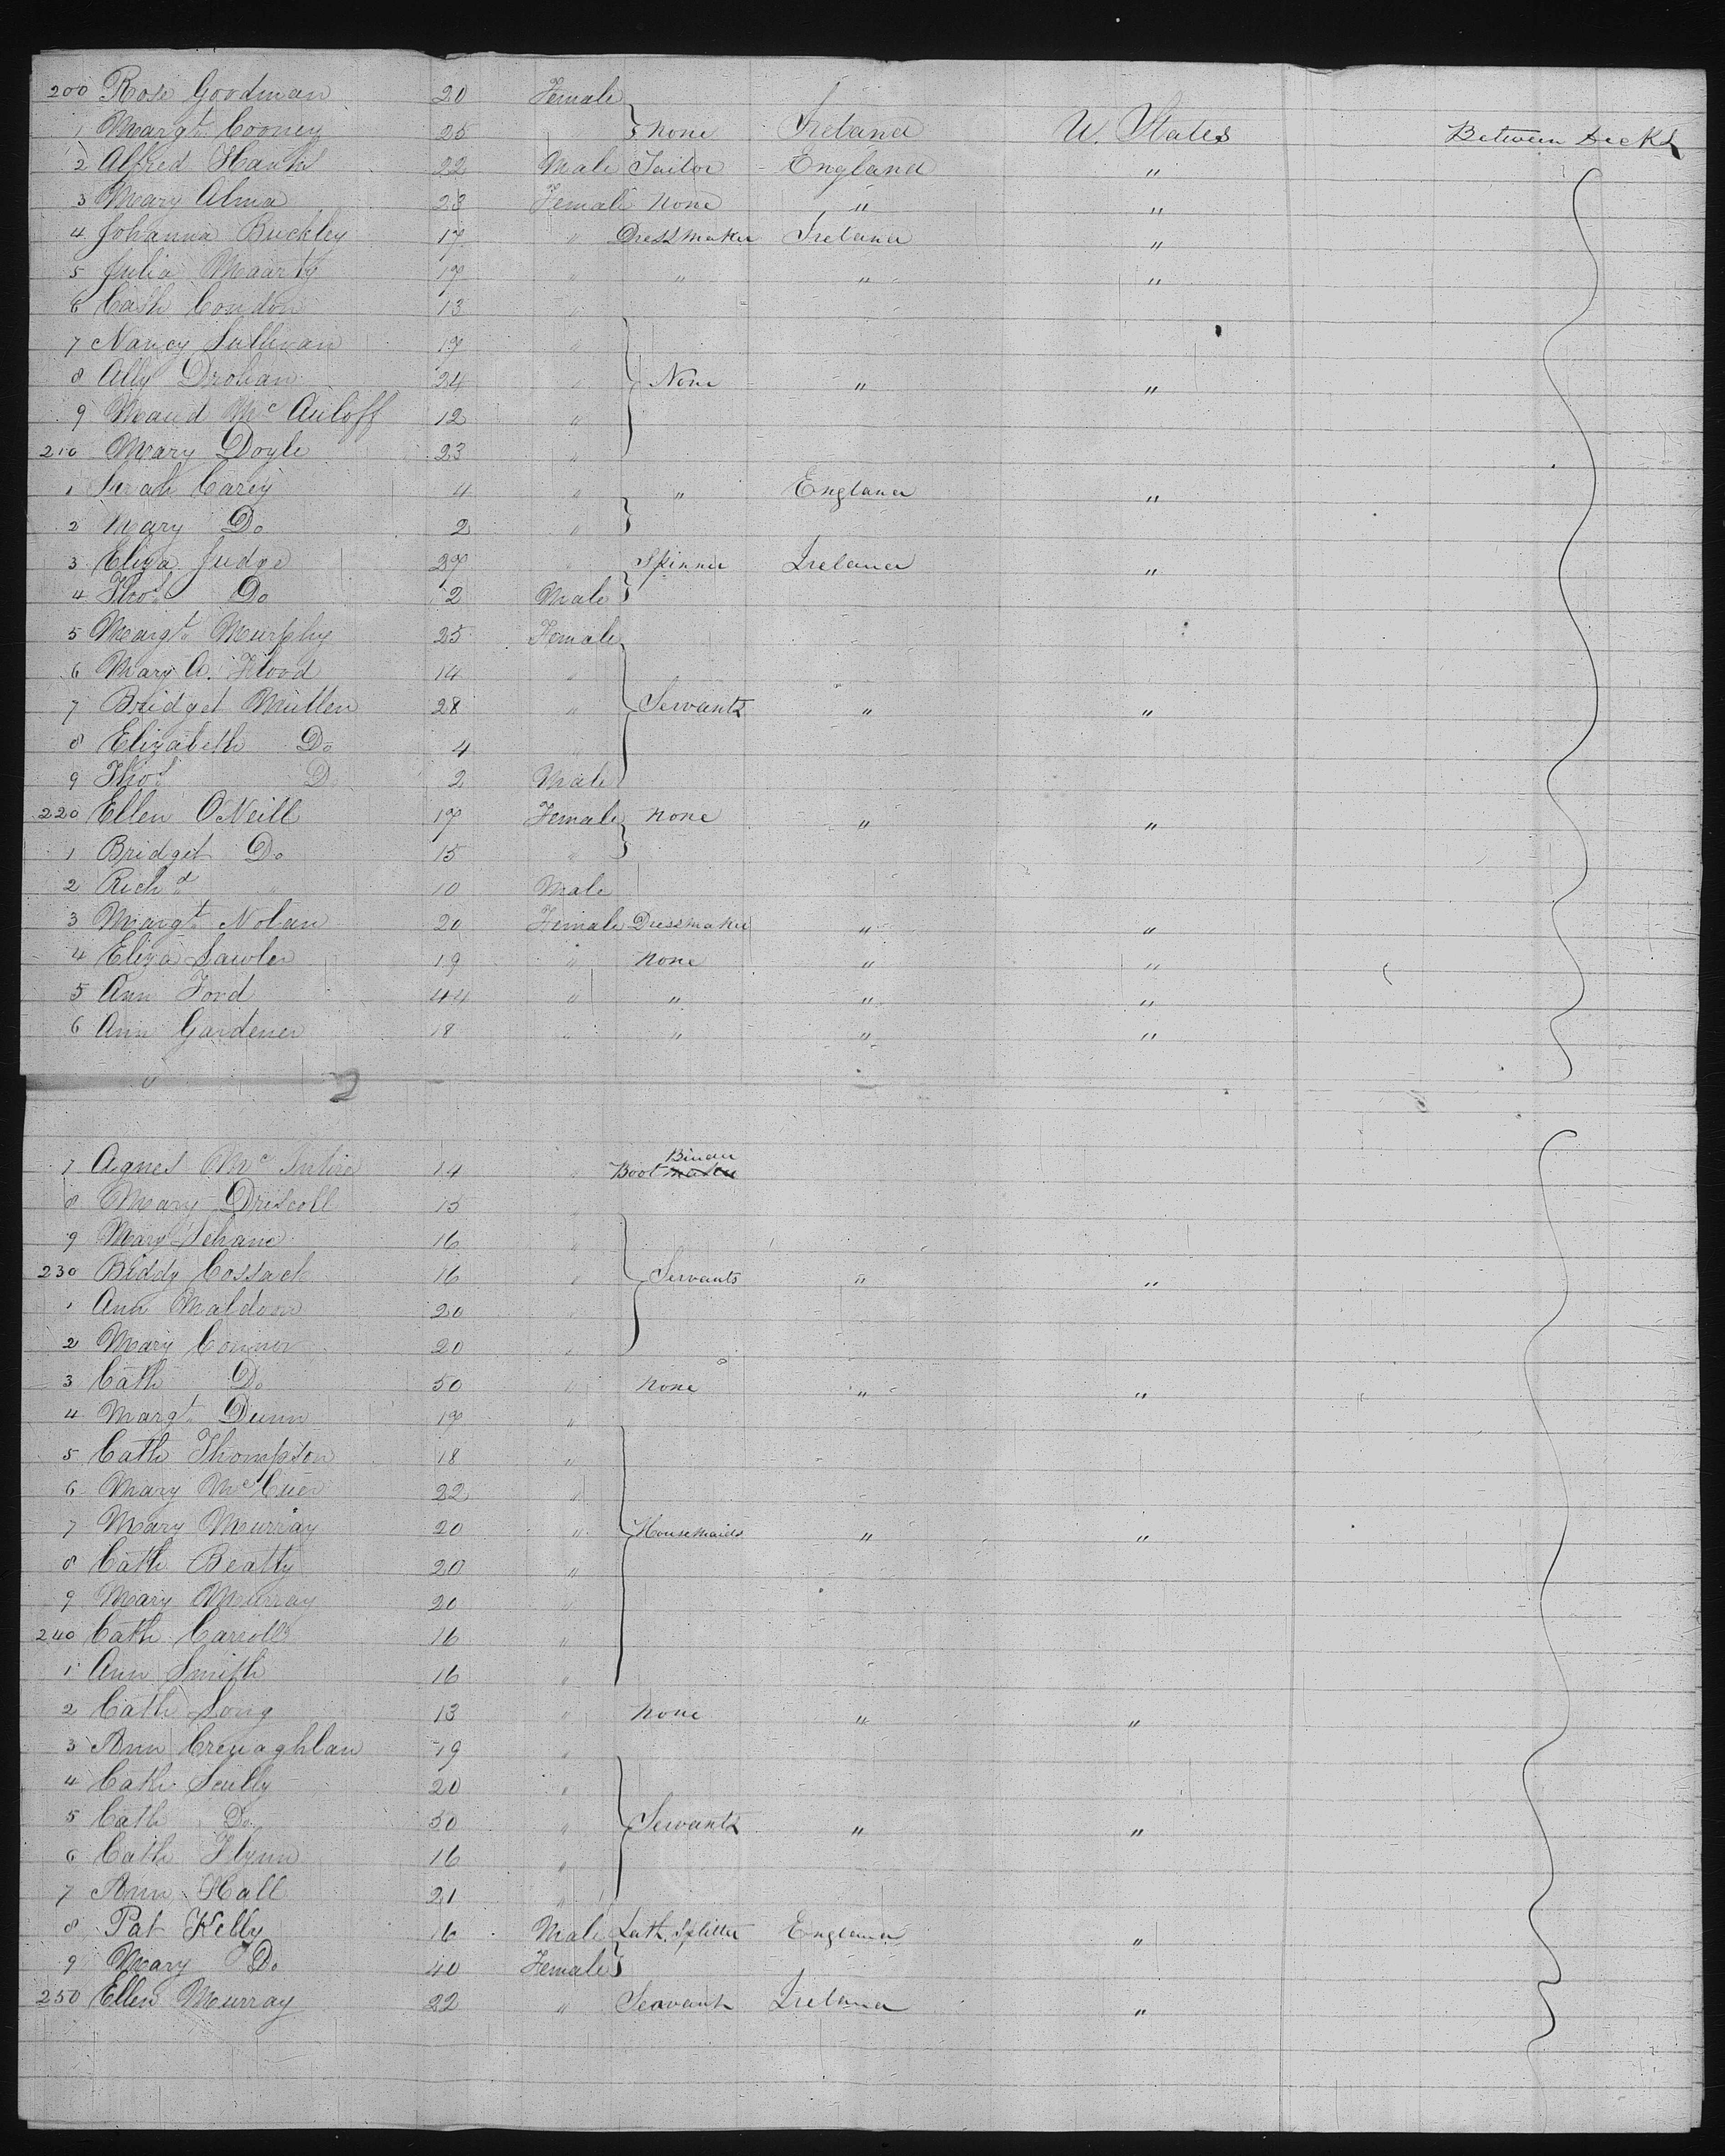 200 Rose Goodman 20 Female
1 Margt. Cooney 25 None Ireland U. States Between Decks
2 Alfred Hanks 22 Male Tailor England "
3 Mary Alma 23 Female None " "
4 Johanna Buckley 17 " Dressmaker Ireland "
5 Julia 17 " " " "
6 Cath Condon 13 "
7 Nancy Sullivan 17 "
8 Ally Drohan 24 " None " "
9 Maud Mc Auloff 12 "
210 Mary Doyle 23 "
1 Sarah Carey 4 " " England "
2 Mary Do 2 "
3 Eliza Judge 27 " Spinner Ireland "
4 Thos. Do 2 Male
5 Margt. Murphy 25 Female
6 Mary A. Flood 14 "
7 Bridget Mullen 28 " Servants " "
8 Elizabeth Do 4
9 Thos. D 2 Male
220 Ellen O'Neill 17 Female None " "
1 Bridget Do 15 "
2 Richd. " 10 Male
3 Margt. Nolan 20 Female Dressmaker " "
4 Eliza Lawler 19 " None " "
5 Ann Ford 44 " " " "
6 Ann Gardener 18 " " " "
" 2
Binder
7 Agnes Mc Intire 14 " Boot maker
8 Mary Driscoll 15 "
9 Mary Sehane 16 "
230 Biddy Cossack 16 " Servants " "
1 Ann Maldoon 20 "
2 Mary Connor 20 "
3 Cath Do 50 " None " "
4 Margt. Dunn 17 "
5 Cath Thompson 18 "
6 Mary McCuer 22 "
7 Mary Murray 20 " Housemaids " "
8 Cath Beatty 20 "
9 Mary Murray 20 "
240 Cath Carroll 16 "
1 Ann Smith 16 "
2 Cath Long 13 " None " "
3 Ann Crenaghlan 19 "
4 Cath Scully 20 "
5 Cath Do 50 " Servants " "
6 Cath Flynn 16 "
7 Ann Hall 21 "
8 Pat Kelly 16 Male Lath. Splitter England "
9 Mary Do 40 Female
250 Ellen Murray 22 " Servant Ireland "